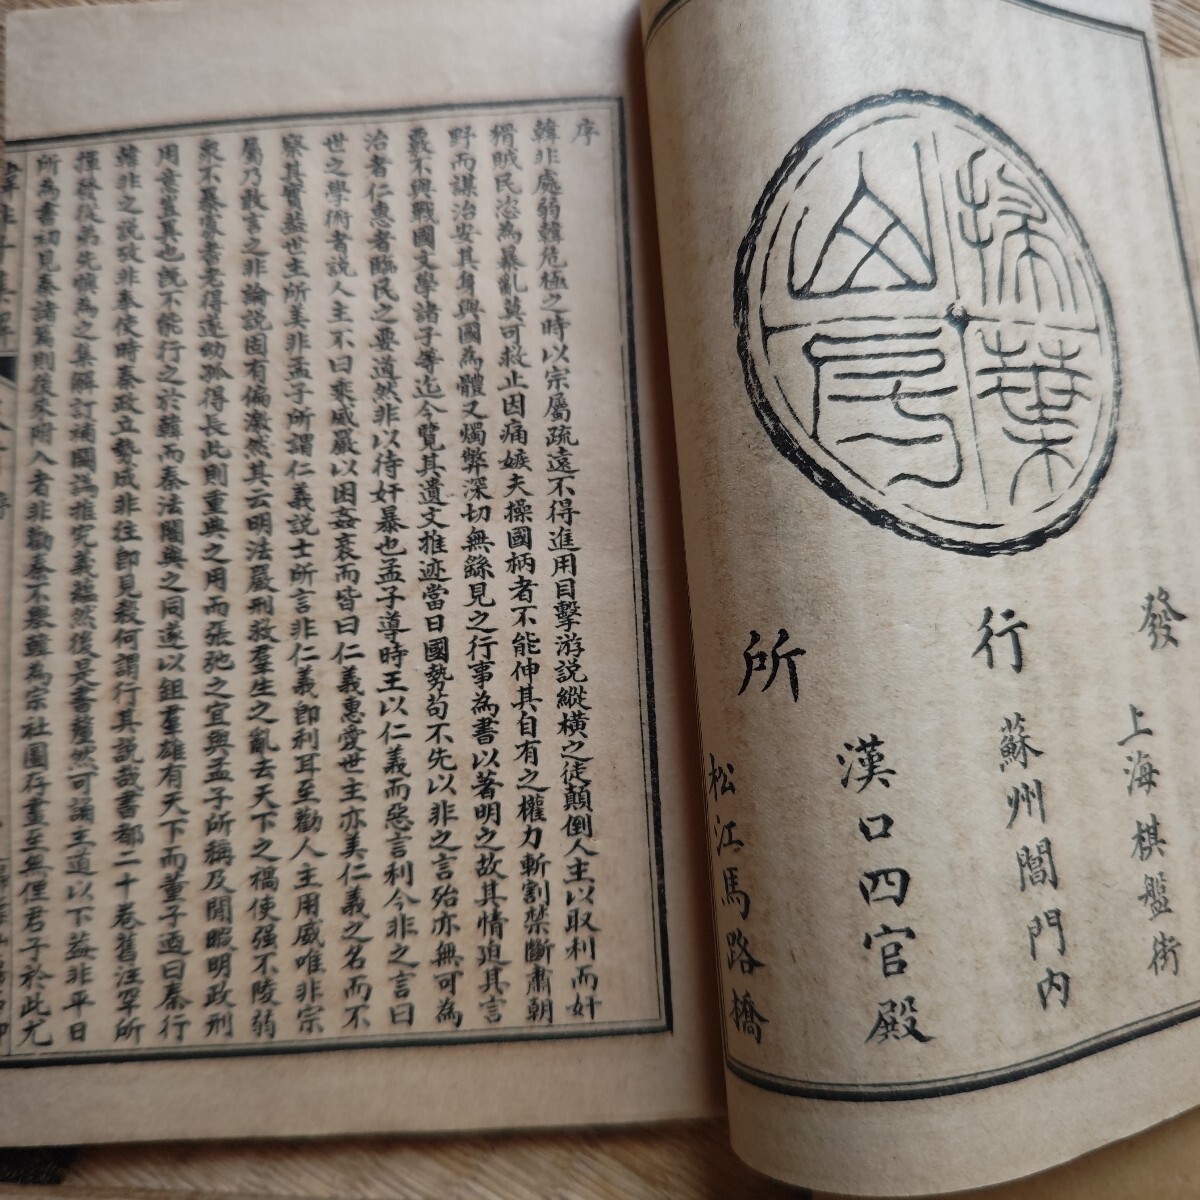 掃葉山房
發行所
上海棋盤街
蘇州閶門内
漢口四官殿
松江馬路橋
序
韓非處弱韓危極之時以宗屬疏遠不得進用目擊游説縱橫之徒顛倒人主以取利而奸
猾賊民恣為暴亂莫可救止因痛嫉夫操國柄者不能伸其自有之權力斬割禁斷肅朝
野而謀治安其身與國為體又燭弊深切無繇見之行事為書以著明之故其情迫其言
覈不與戰國文學諸子等迄今覽其遺文推迹當日國勢苟不先以非之言殆亦無可為
治者仁惠者臨民之要道然非以待奸暴也孟子導時王以仁義而惡言利今非之言曰
世之學術者説人主不曰乘威嚴以困姦衺而皆曰仁義惠愛世主亦美仁義之名而不
察其實蓋世主所美非孟子所謂仁義説士所言非仁義卽利耳至勸人主用威唯非宗
屬乃敢言之非論説固有偏激然其云明法嚴刑救羣生之亂去天下之禍使强不陵弱
衆不暴寡耆老得遂幼孤得長此則重典之用而張弛之宜與孟子所稱及閒暇明政刑
用意豈異也既不能行之於韓而秦法闇與之同遂以鉏羣雄有天下而董子迺曰秦行
韓非之説攷非奉使時秦政立勢成非往卽見殺何謂行其説哉書都二十卷舊注罕所
揮發從弟先慎為之集解訂補闕譌推究義蘊然後是書釐然可誦主道以下蓋非平日
所為書初見秦諸篇則後來附入者非勸秦不舉韓為宗社圖存畫至無俚君子於此尤